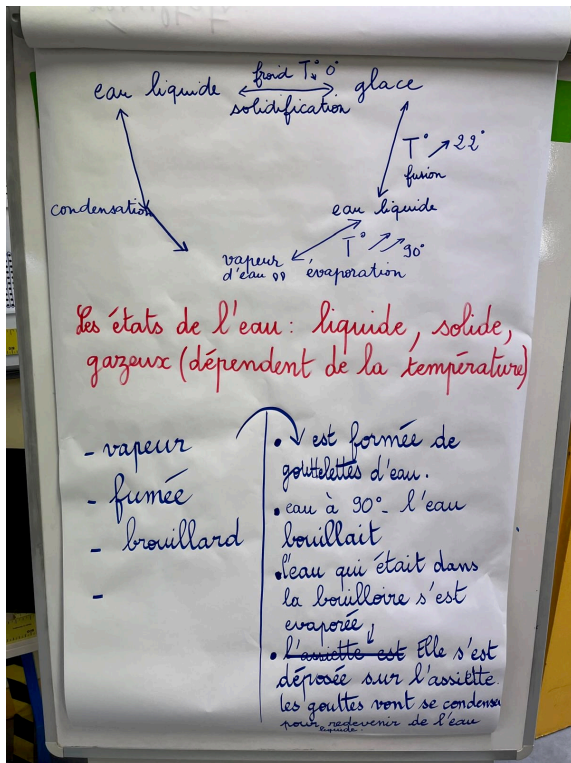 eau liquide froid T° ↘ 0° glace
solidification
T° ↗ 22°
fusion
condensation
eau liquide
T° ↗↗ 90°
vapeur
d'eau évaporation
Les états de l'eau : liquide, solide,
gazeux (dépendent de la température)
- vapeur
- fumée
- brouillard
-
• est formée de
gouttelettes d'eau.
• eau à 90° - l'eau
bouillait
• l'eau qui était dans
la bouilloire s'est
evaporée
• l'assiette est Elle s'est
déposée sur l'assiette.
les gouttes vont se condenser
pour redevenir de l'eau
liquide.